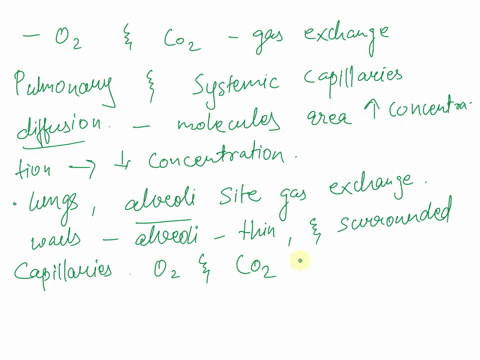 - O₂ & CO₂ - gas exchange
Pulmonary & Systemic Capillaries
diffusion. - molecules area ↑ concentra-
tion → ↓ concentration.
• lungs, alveoli site gas exchange.
walls - alveoli - thin, & surrounded
Capillaries. O₂ & CO₂